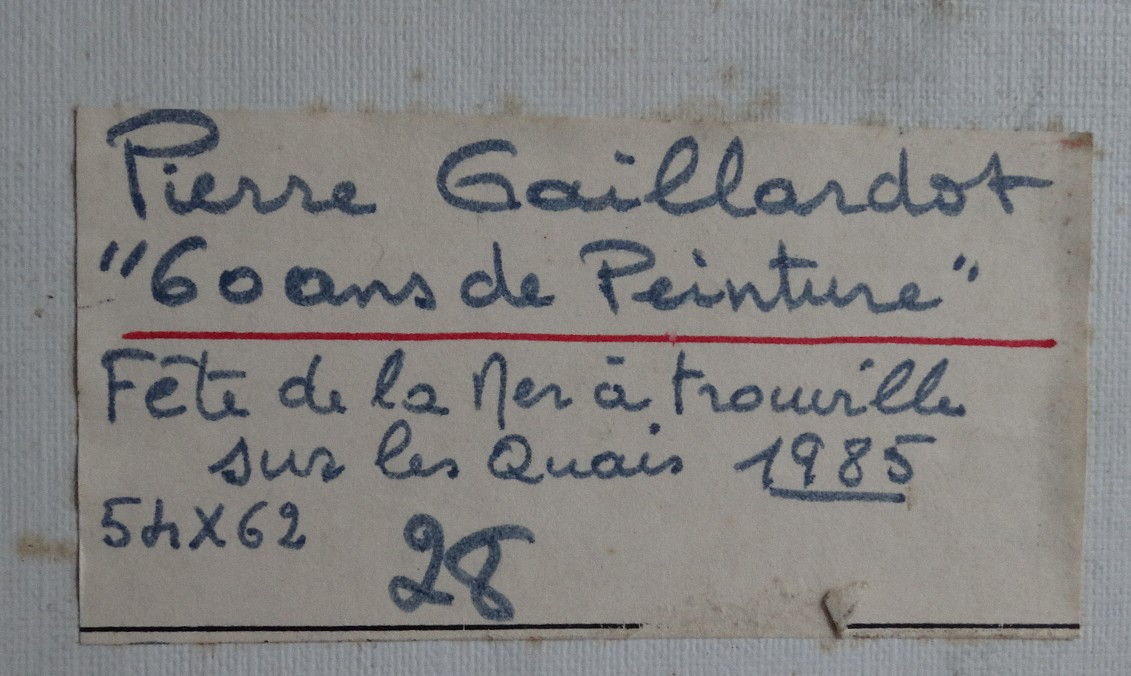 Pierre Gaillardot
"60 ans de Peinture"
Fête de la Mer à trouville
sur les Quais 1985
54X62
28